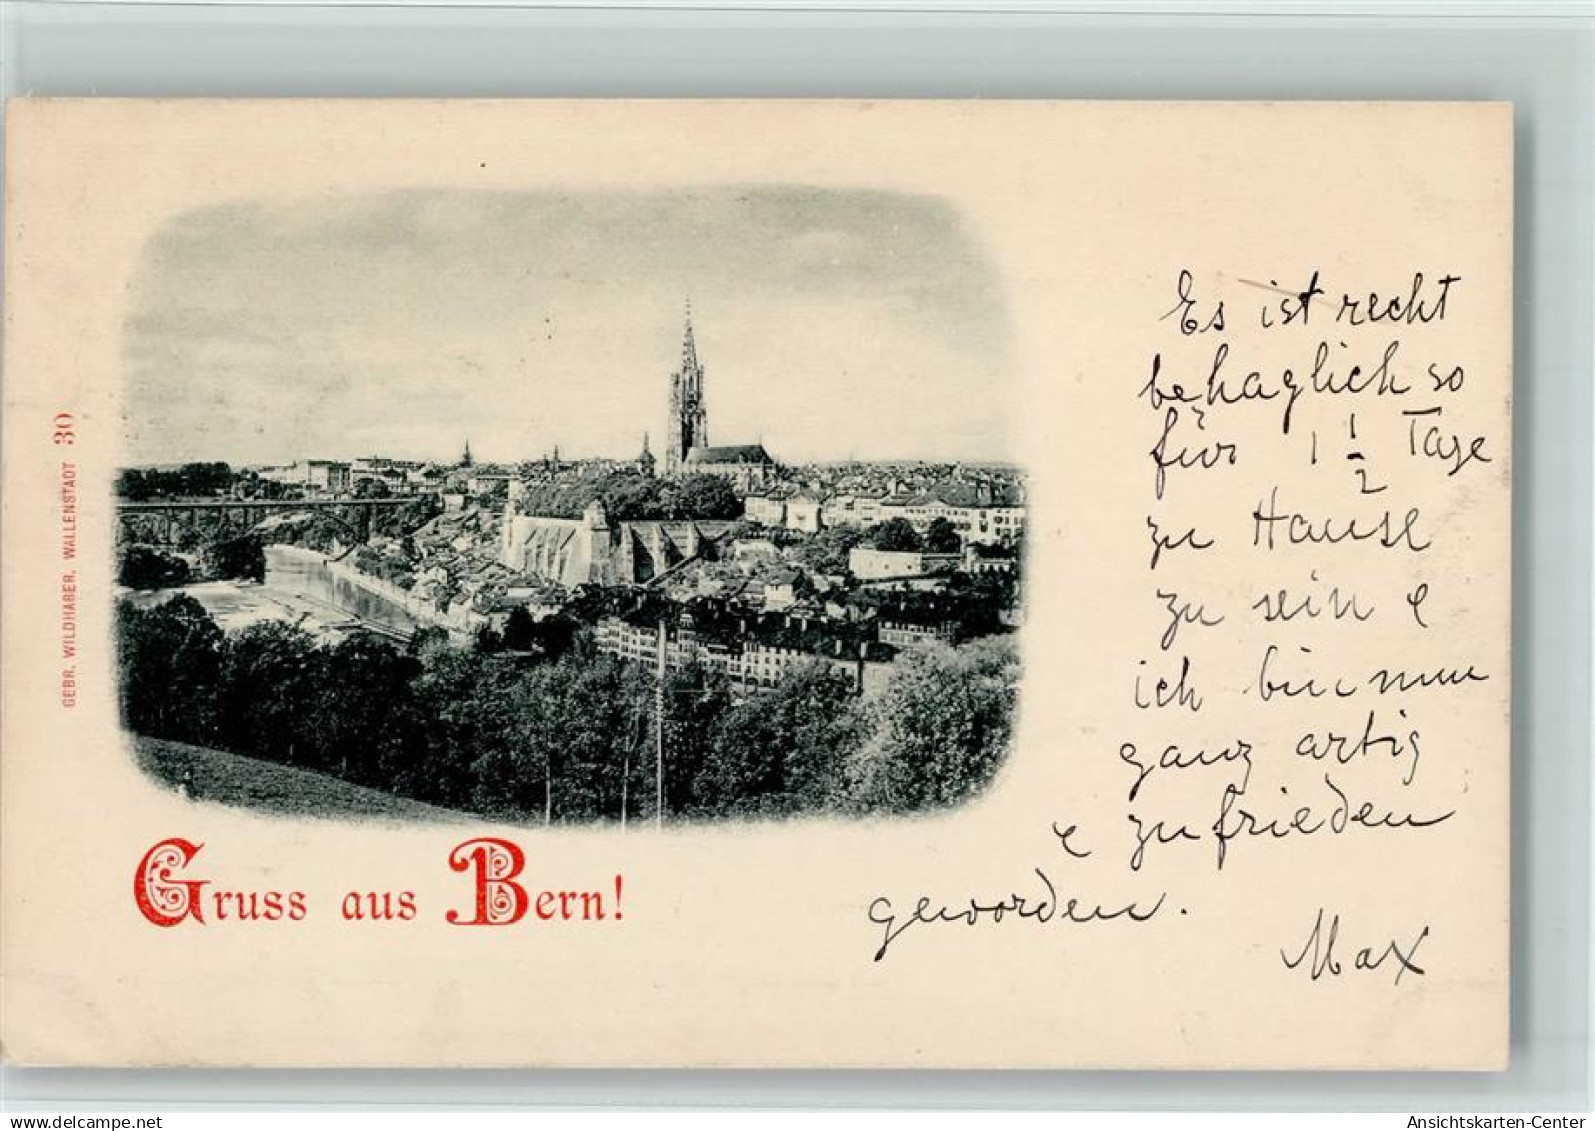 GEBR. WILDHABER, WALLENSTADT 30
Gruss aus Bern!
Es ist recht
behaglich so
für 1 1/2 Tage
zu Hause
zu sein &
ich bin nun
ganz artig
& zufrieden
geworden.
Max
www.delcampe.net
Ansichtskarten-Center